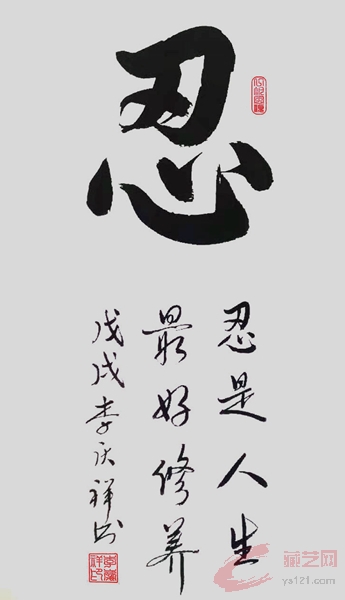 忍
忍是人生
最好修养
戊戌李庆祥书
藏艺网
ys121.com